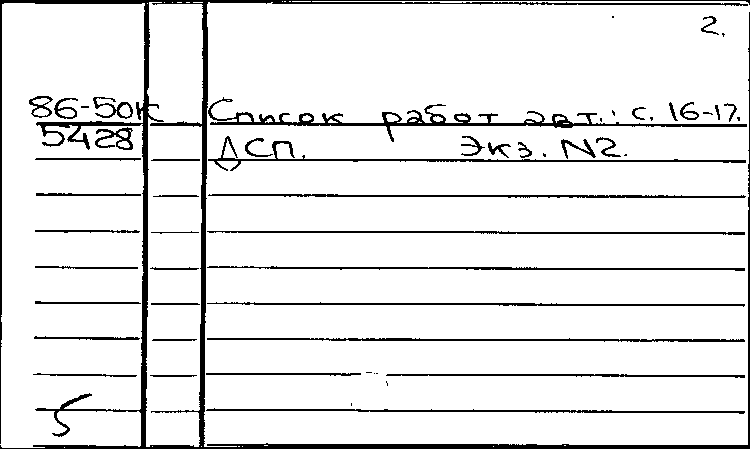 2.
86-50к Список работ авт.: с. 16-17.
5428 ДСП. Экз. N2.
5